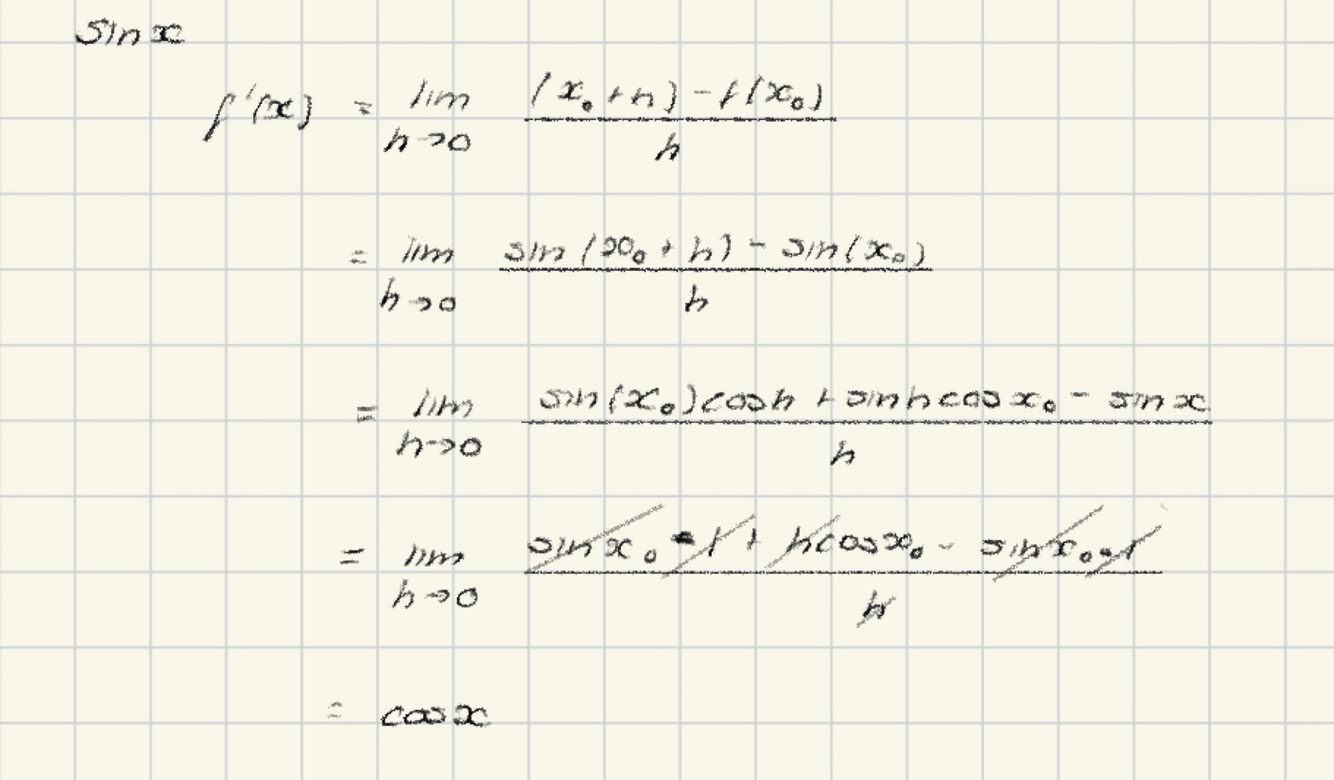 sin x
f'(x) = lim h→0 (x₀+h) - f(x₀) / h
= lim h→0 sin(x₀ + h) - sin(x₀) / h
= lim h→0 sin(x₀)cosh + sinhcosx₀ - sinx / h
= lim h→0 sinx₀ • 1 + hcosx₀ - sinx₀ • 1 / h
= cosx